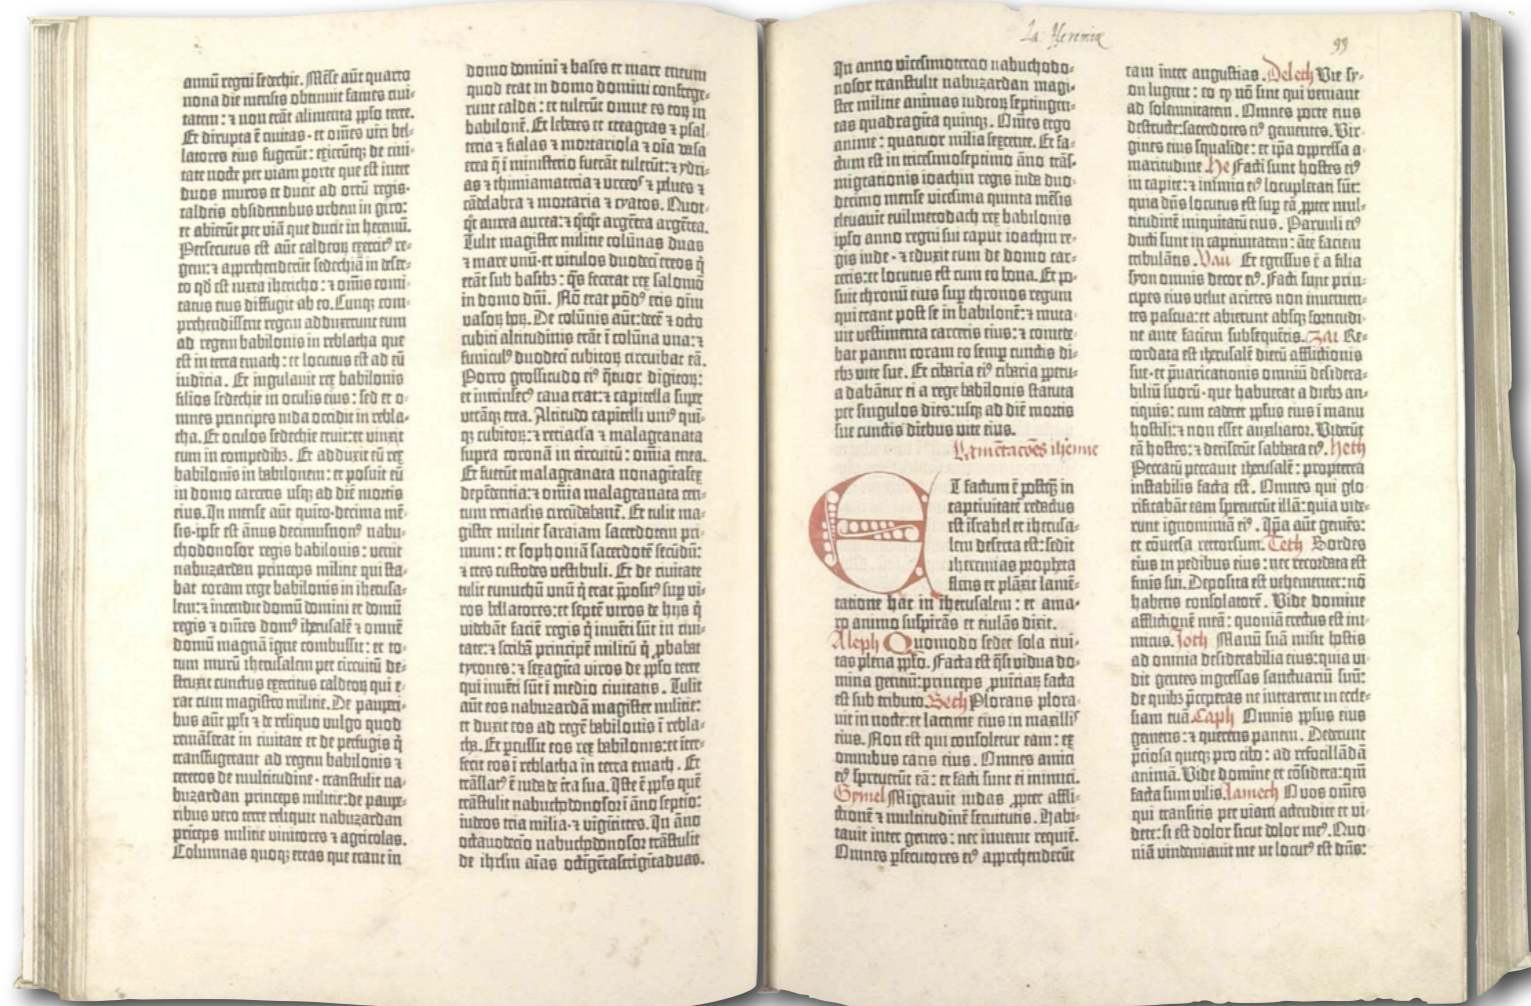 annū regni sedechie. Mēse aūt quarto
nona die mensis obtinuit fames ciui-
tatem: ⁊ non erāt alimenta ppło terre.
Et dirupta ē ciuitas · et oīnes viri bel-
latores eius fugerūt: exierūtq; de ciui-
tate nocte per viam porte que est inter
duos muros et ducit ad ortū regis·
caldeis obsidentibus urbem in giro:
et abierūt per viā que ducit in heremū.
Persecutus est aūt caldeoꝝ exercitꝰ re-
gem: ⁊ apprehenderūt sedechiā in deser-
to qd̄ est iuxta ihericho: ⁊ omīs comi-
tatus eius diffugit ab eo. Cumq; com-
prehendissent regem adduxerunt eum
ad regem babilonis in reblatha que
est in terra emath: et locutus est ad eū
iudicia. Et iugulauit rex babilonis
filios sedechie in oculis eius: sed et o-
mnes principes iuda occidit in rebla-
tha. Et oculos sedechie eruit: et vinxit
eum in compedibꝫ. Et adduxit eū rex
babilonis in babilonem: et posuit eū
in domo carceris usq; ad diē mortis
eius. In mense aūt quīto·decima mē-
sis·ipse est ānus decimusnonꝰ nabu-
chodonosor regis babilonis: venit
nabuzardan princeps militie qui sta-
bat coram rege babilonis in iherusa-
lem: ⁊ incendit domū domini et domū
regis ⁊ oīnes domꝰ iherusalē ⁊ omnē
domū magnā igne combussit: et to-
tum murū iherusalem per circuitū de-
struxit cunctus exercitus caldeoꝝ qui e-
rat cum magistro militie. De pauperi-
bus aūt ppłi ⁊ de reliquo vulgo quod
remāserat in ciuitate et de perfugis q̄
transfugerant ad regem babilonis ⁊
ceteros de multitudine · transtulit na-
buzardan princeps militie: de paupe-
ribus vero terre reliquit nabuzardan
prīceps militie vinitores ⁊ agricolas.
Columnas quoq; ereas que erant in
domo domini ⁊ bases et mare eneum
quod erat in domo domini confrege-
runt caldei: et tulerūt omne es eoꝝ in
babilonē. Et lebetes et creagras ⁊ psal-
teria ⁊ fialas ⁊ mortariola ⁊ oīa vasa
erea q̄ ī ministerio fuerāt tulerūt: ⁊ ydri-
as ⁊ thimiamateria ⁊ urceoſ ⁊ pelues ⁊
cādelabra ⁊ mortaria ⁊ cyatos. Quot-
q̄t aurea aurea: ⁊ q̄tq̄t argētea argētea.
Tulit magister militie colūnas duas
⁊ mare unū·et vitulos duodeci ereos q̄
erāt sub basibꝫ: q̄s fecerat rex salomō
in domo dn̄i. Nō erat pōdꝰ eris oīm
vasoꝝ hoꝝ. De colūnis aūt: decē ⁊ octo
cubiti altitudinis erāt ī colūna una: ⁊
funiculꝰ duodeci cubitoꝝ circuibat eā.
Porro grossitudo eiꝰ q̄tuor digitoꝝ:
et intrinsecꝰ caua erat: ⁊ capitella super
utrāq; erea. Altitudo capitelli uniꝰ quī-
q; cubitoꝝ: ⁊ retiacła ⁊ malagranata
supra coronā in circuitu: omīa erea.
Et fuerūt malagranata nonagītasex
depēdentia: ⁊ omīa malagranata cen-
tum retiaclis circūdabant̄. Et tulit ma-
gister militie saraiam sacerdotem pri-
mum: et sophoniā sacerdotē secūdū:
⁊ tres custodes vestibuli. Et de ciuitate
tulit eunuchū unū q̄ erat p̄positꝰ sup vi-
ros bellatores: et septē viros de hijs q̄
videbāt faciē regis q̄ inuēti sūt in ciui-
tate: ⁊ scribā principē militū q̄ ꝓbabat
tyrones: ⁊ sexagīta viros de ppło terre
qui inuēti sūt ī medio ciuitatis. Tulit
aūt eos nabuzardā magister militie:
et duxit eos ad regē babilonis ī rebla-
tha. Et ꝑcussit eos rex babilonis: et īter-
fecit eos ī reblatha in terra emath. Et
trāslatꝰ ē iuda de t̄ra sua. Iste ē ppłus quē
trāstulit nabuchodonosor ī āno septīo:
iudeos tria milia·⁊ vigīti tres. In āno
octauodecīo nabuchodonosor trāstulit
de ihrłm aīas octīgētas trigīta duas.
La. Jeremiæ
99
In anno vicesimotercio nabuchodo-
nosor transtulit nabuzardan magi-
ster militie animas iudeoꝝ septingen-
tas quadragīta quinq;. Omēs ergo
anime: quatuor milia sexcente. Et fa-
ctum est in tricesimoseptimo āno trās-
migrationis ioachin regis iuda duo-
decimo mense vicesima quinta mēsis
eleuauit euilmerodach rex babilonis
ipso anno regni sui caput ioachin re-
gis iude · ⁊ eduxit eum de domo car-
ceris: et locutus est cum eo bona. Et po-
suit thronū eius sup thronos regum
qui erant post se in babilonē: ⁊ muta-
uit vestimenta carceris eius: ⁊ comede-
bat panem coram eo semꝑ cunctis di-
ebꝫ vite sue. Et cibaria eiꝰ cibaria ꝑpetu-
a dabātur ei a rege babilonis statuta
per singulos dies: usq; ad diē mortis
sue cunctis diebus vite eius.
Lamētacōes iheremie
ET factum ē postq̄ꝫ in
captiuitatē redactus
est israhel et iherusa-
lem deserta est: sedit
iheremias propheta
flens et plāxit lamē-
tatione hac in iherusalem: et ama-
ro animo suspirās et eiulās dixit.
Aleph Quomodo sedet sola ciui-
tas plena ppło. Facta est q̄si vidua do-
mina gentiū: princeps ꝓuīciaꝝ facta
est sub tributo. Beth Plorans plora-
uit in nocte: et lacrime eius in maxillis
eius. Non est qui consoletur eam: ex
omnibus caris eius. Omnes amici
eiꝰ spreuerūt eā: et facti sunt ei inimici.
Gymel Migrauit iudas ꝓpter affli-
ctionē ⁊ multitudinē seruitutis. Habi-
tauit inter gentes: nec inuenit requiē.
Omnes ꝑsecutores eiꝰ apprehenderūt
eam inter angustias. Deleth Vie sy-
on lugent: eo q̄ nō sint qui veniant
ad solennitatem. Omnes porte eius
destructe: sacerdotes eiꝰ gementes. Vir-
gines eius squalide: et ip̄a oppressa a-
maritudine. He Facti sunt hostes eiꝰ
in capite: ⁊ inimici eiꝰ locupletati sūt:
quia dn̄s locutus est sup eā ꝓpter mul-
titudinē iniquitatū eius. Paruuli eiꝰ
ducti sunt in captiuitatem: āte faciem
tribulātis. Vau Et egressus ē a filia
syon omnis decor eiꝰ. Facti sunt prin-
cipes eius velut arietes non inuenien-
tes pascua: et abierunt absq; fortitudi-
ne ante faciem subsequētis. Zai Re-
cordata est iherusalē dierū afflictionis
sue·et p̄uaricationis omniū desidera-
biliū suorū · que habuerat a diebꝫ an-
tiquis: cum caderet ppłus eius ī manu
hostili: ⁊ non esset auxiliator. Viderūt
eā hostes: ⁊ deriserūt sabbata eiꝰ. Heth
Peccatū peccauit iherusalē: propterea
instabilis facta est. Omnes qui glo-
rificabāt eam spreuerūt illā: quia vide-
runt ignominiā eiꝰ. Ip̄a aūt gemēs:
et cōuersa retrorsum. Teth Sordes
eius in pedibus eius: nec recordata est
finis sui. Deposita est vehementer: nō
habens consolatorē. Vide domine
afflictionē meā: quoniā erectus est ini-
micus. Joth Manū suā misit hostis
ad omnia desiderabilia eius: quia vi-
dit gentes ingressas sanctuariū suū:
de quibꝫ p̄ceperas ne intrarent in eccle-
siam tuā. Caph Omnis ppłus eius
gemens: ⁊ querens panem. Dederunt
p̄ciosa queq; pro cibo: ad refocillādā
animā. Vide domine et cōsidera: qm̄
facta sum vilis. Lamech O vos omēs
qui transitis per viam attendite et vi-
dete: si est dolor sicut dolor meꝰ. Quo-
niā vindemiauit me ut locutꝰ est dn̄s: